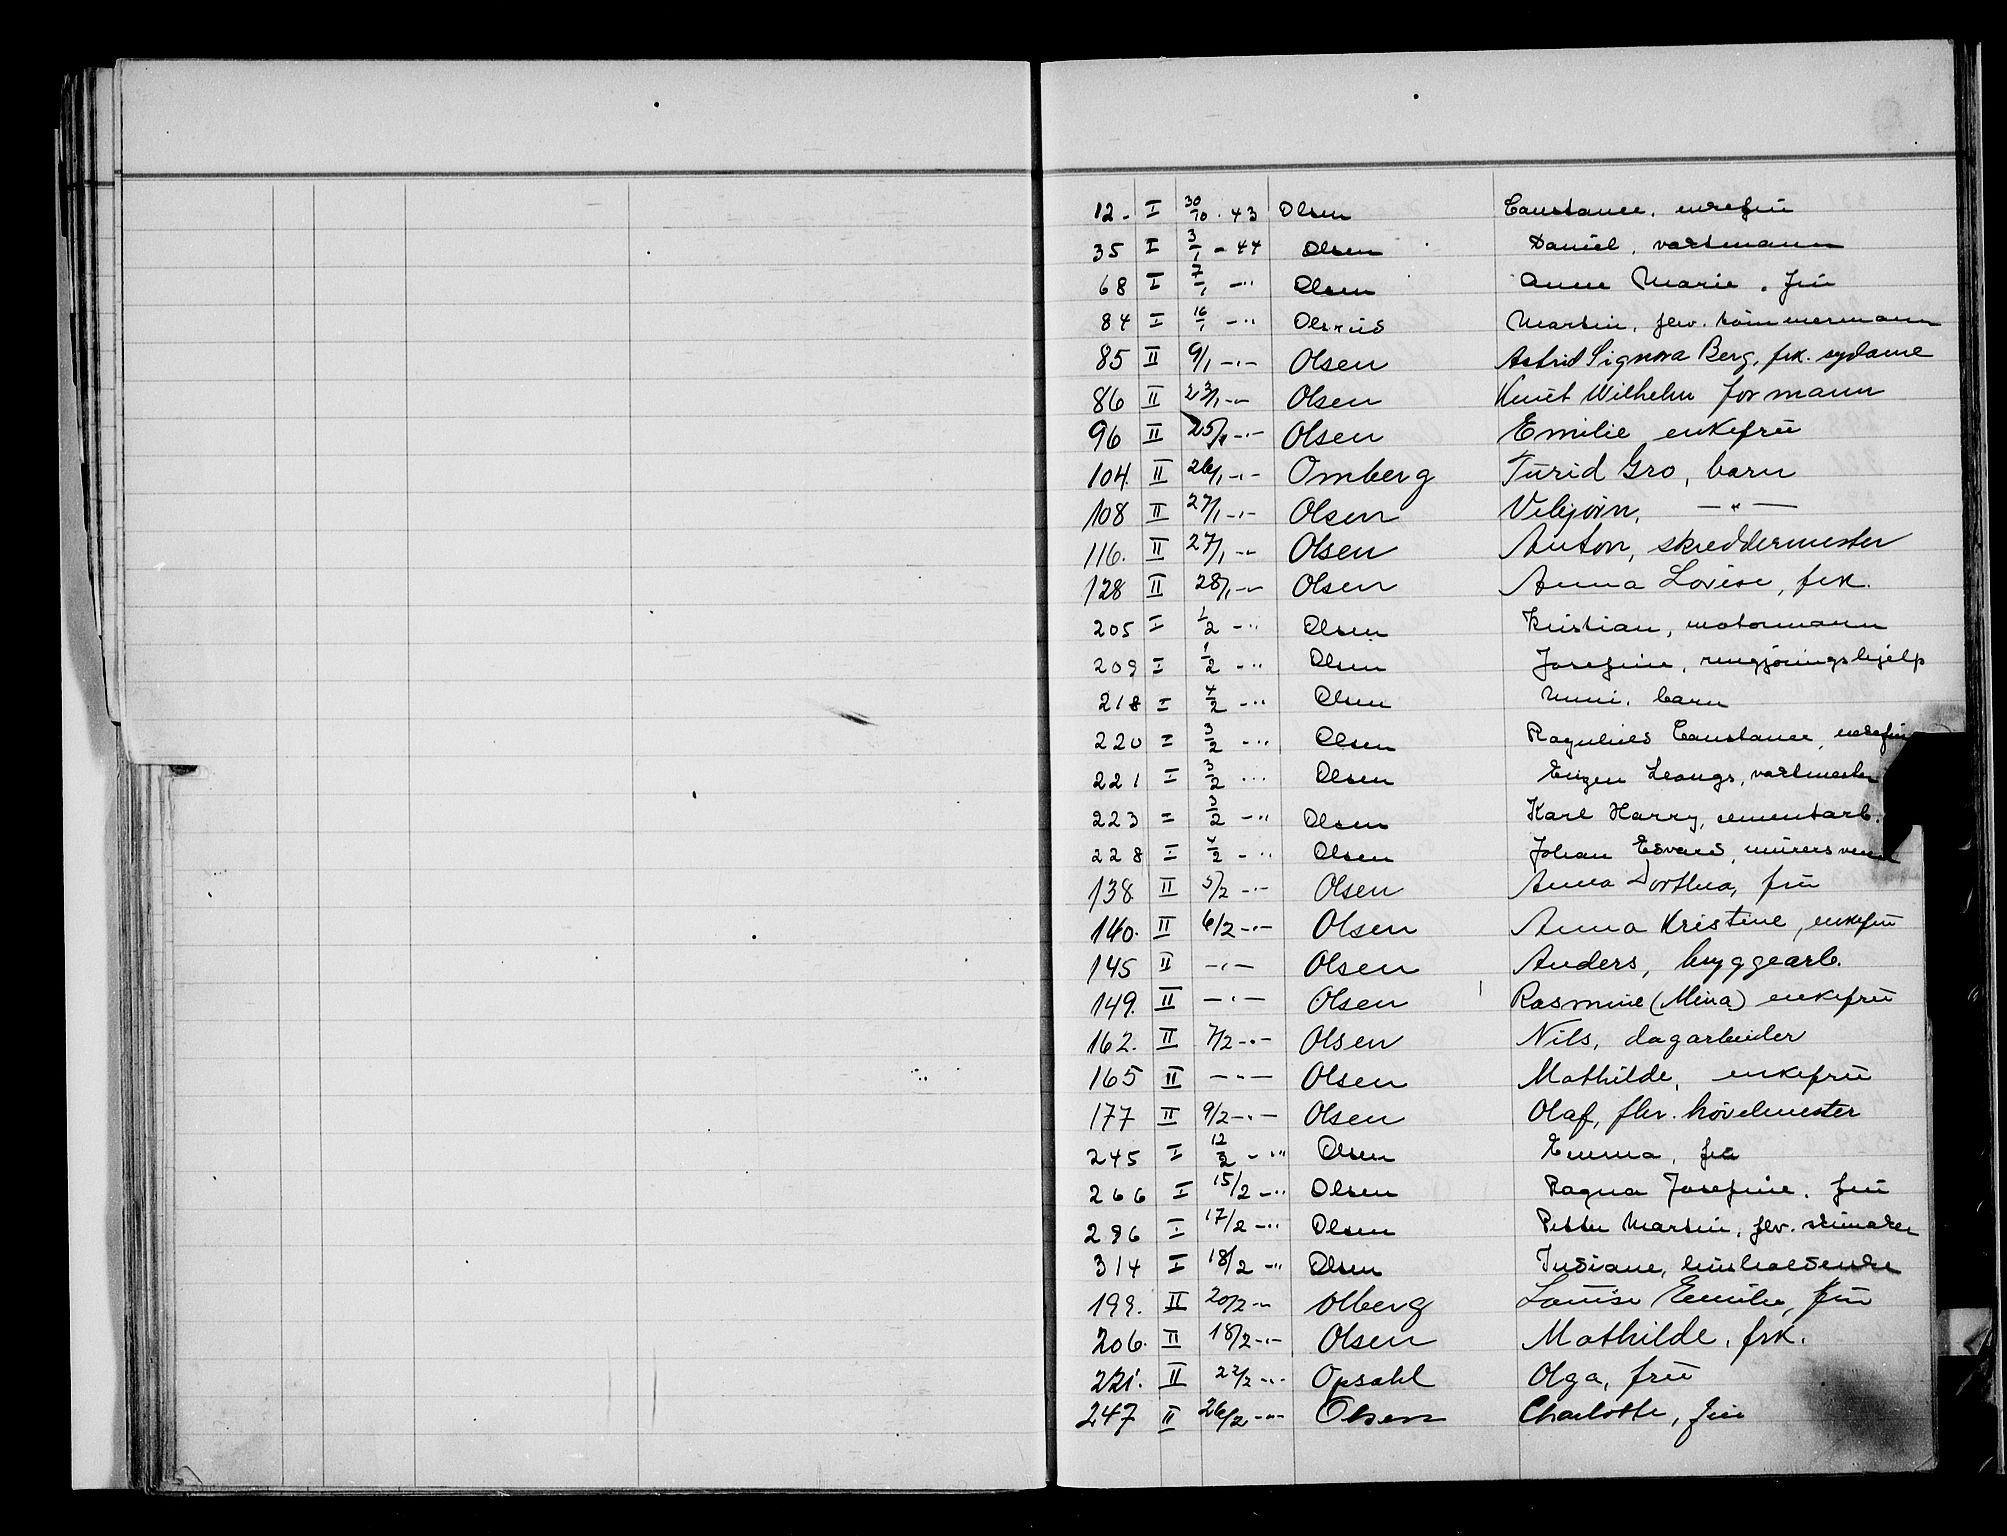 12. I 30/10 - 43 Olsen Constance, enkefrü
35 I 3/1 - 44 Olsen Daniel, vaktmann
68 I 7/1 -" Olsen Anne Marie, frü
84 I 16/1 -" Olsrüd Martin, flv. tömmermann
85 II 9/1 -"- Olsen Astrid Signora Berg, frk. sydame
86 II 23/1 -"- Olsen Knüt Wilhelm formann
96 II 25/1 -"- Olsen Emilie enkefrü
104. II 26/1 -"- Omberg Türid Gro, barn
108 II 27/1 -"- Olsen Vebjörn, -"-
116. II 27/1 -"- Olsen Anton, skreddermester
128 II 28/1 -"- Olsen Anna Lovise, frk.
205 I 1/2 -" Olsen Kristian, motormann
209 I 1/2 -" Olsen Josefine, rengjöringshjelp
218 I 4/2 -" Olsen Unni, barn
220 I 3/2 -" Olsen Ragnhild Constance, enkefrü
221 I 3/2 -" Olsen Eugen Leangs, vaktmester
223 I 3/2 -" Olsen Karl Harry, sementarb.
228 I 4/2 -" Olsen Johan Edvard, mürersvend
138 II 5/2 -"- Olsen Anna Dorthea, frü
140. II 6/2 -"- Olsen Anna Kristine, enkefrü
145 II -"- Olsen Anders, bryggearb.
149. II -"- Olsen Rasmine (Mina) enkefrü
162. II 7/2 -"- Olsen Nils, dagarbeider
165 II -"- Olsen Mathilde, enkefrü
177 II 9/2 -"- Olsen Olaf, fhv. hövelmester
245 I 12/2 -" Olsen Emma, frü
266 I 15/2 -" Olsen Ragna Josefine, frü
286 I 17/2 -" Olsen Petter Martin, flv. skomaker
314 I 18/2 -" Olsen Indiane, hüsholderske
199. II 20/2 -"- Olberg Louise Emilie, frü
206. II 18/2 -"- Olsen Mathilde, frk.
221. II 22/2 -"- Opsahl Olga, frü
247 II 26/2 -"- Olsen Charlotte, frü